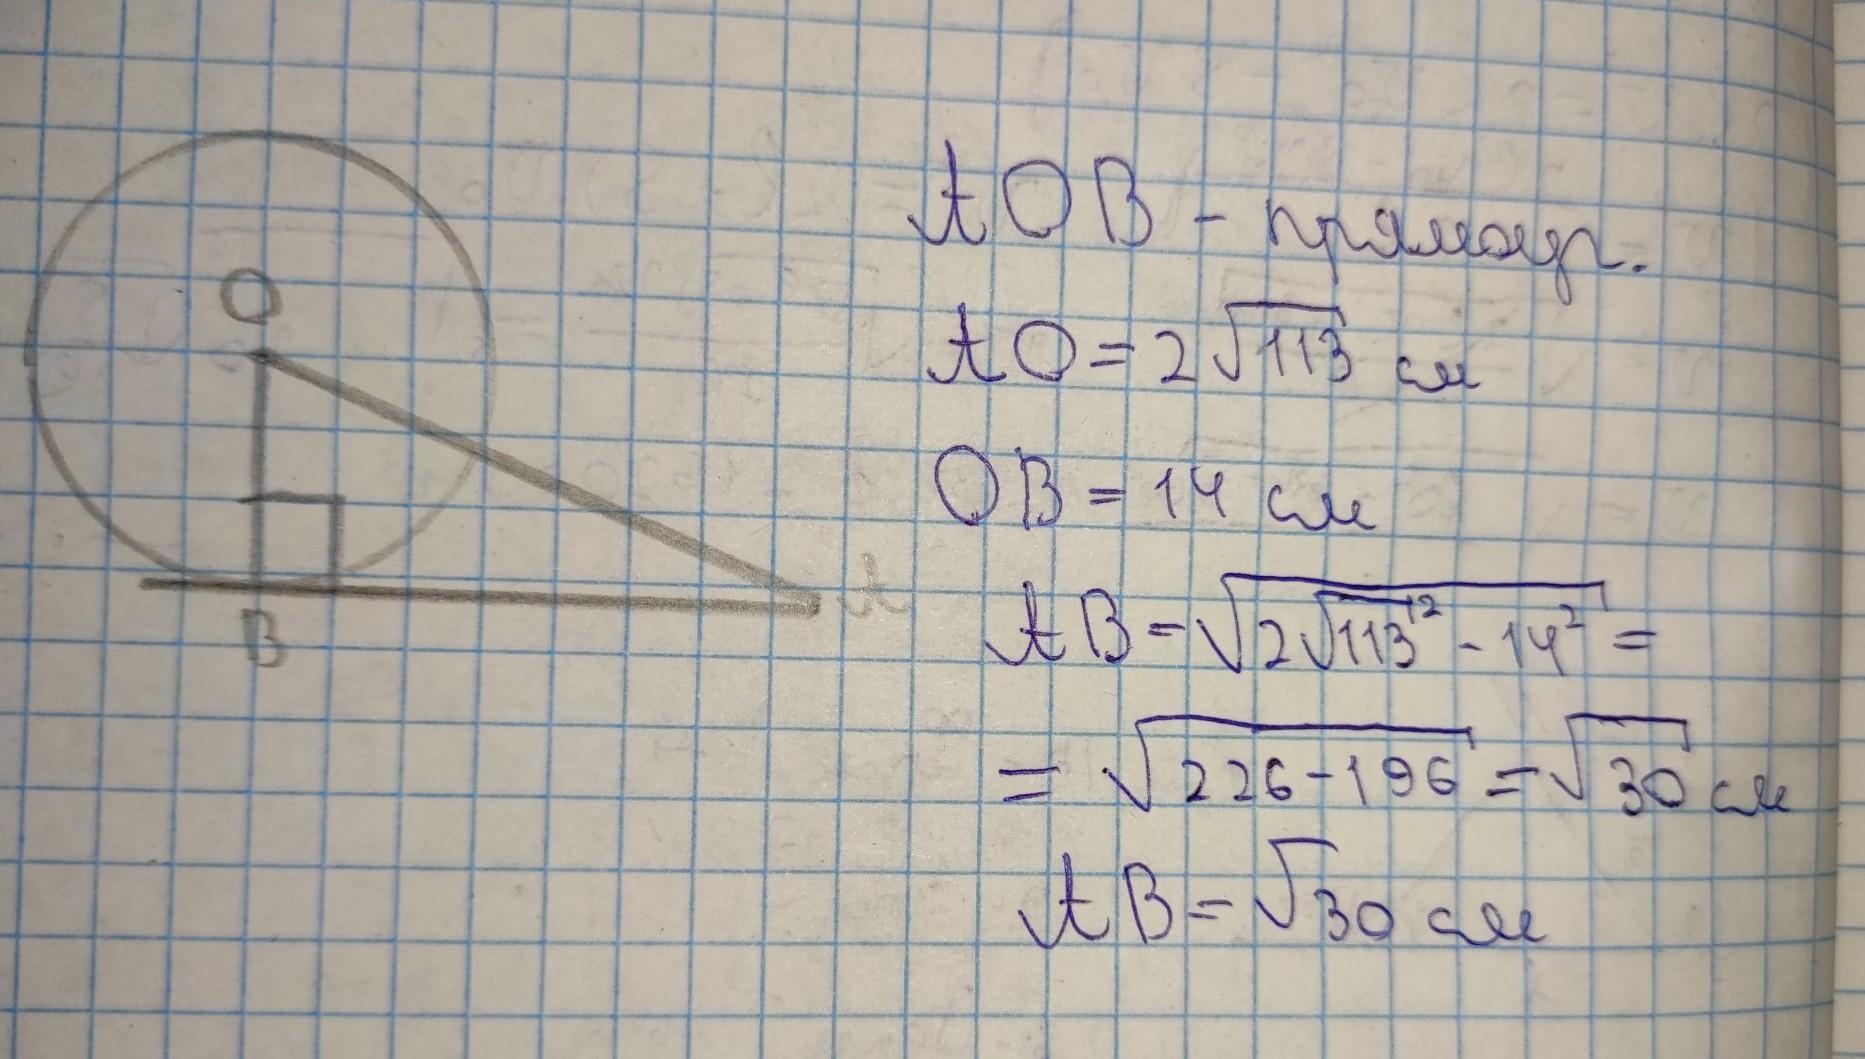 O
B
A
AOB - прямоуг.
AO = 2√113 см
OB = 14 см
AB = √2√113² - 14² =
= √226 - 196 = √30 см
AB = √30 см